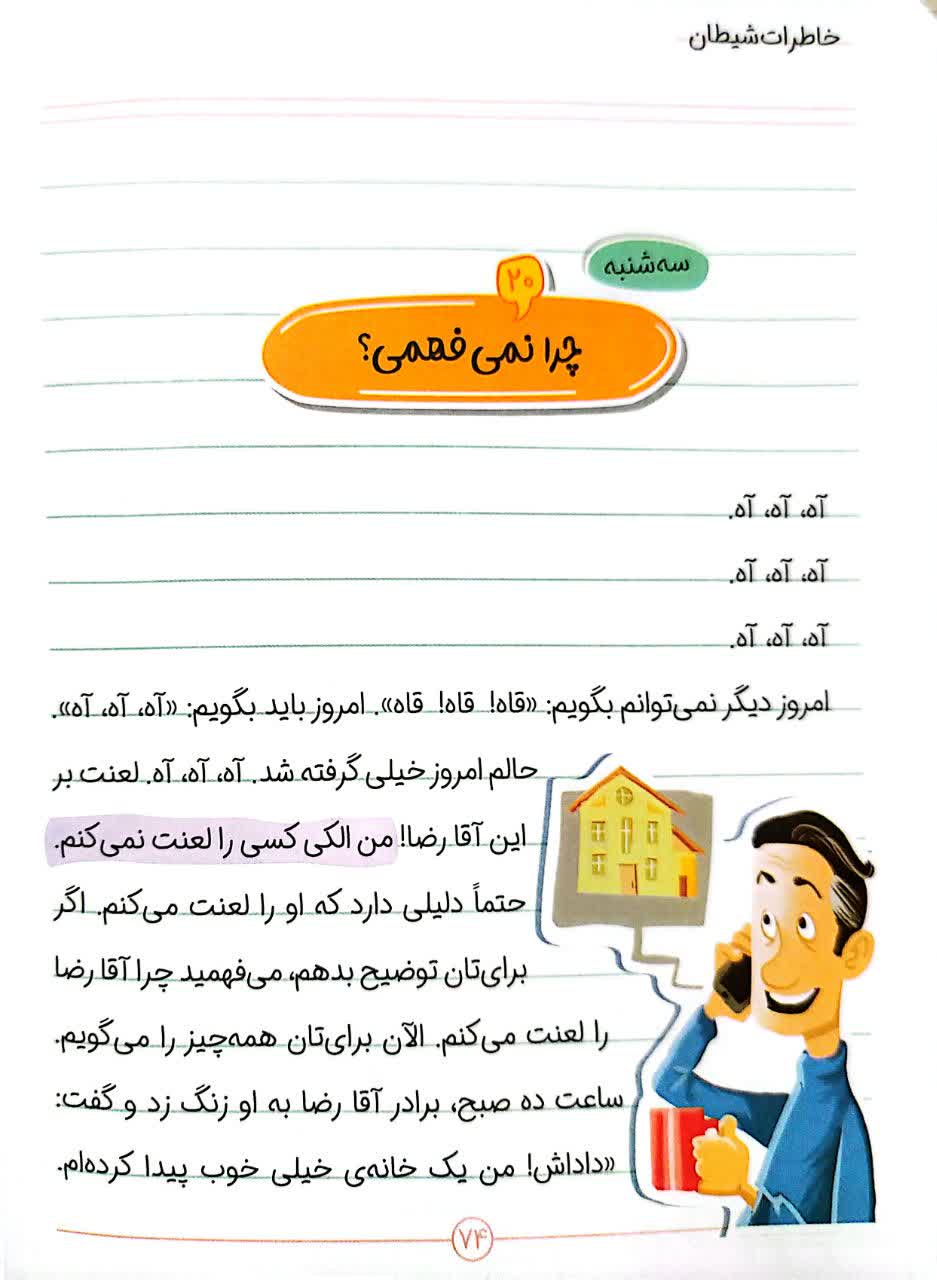 خاطرات شیطان
سه‌شنبه
۲۰
چرا نمی فهمی؟
آه، آه، آه.
آه، آه، آه.
آه، آه، آه.
امروز دیگر نمی‌توانم بگویم: «قاه! قاه! قاه». امروز باید بگویم: «آه، آه، آه».
حالم امروز خیلی گرفته شد. آه، آه، آه. لعنت بر
این آقا رضا! من الکی کسی را لعنت نمی‌کنم.
حتماً دلیلی دارد که او را لعنت می‌کنم. اگر
برای‌تان توضیح بدهم، می‌فهمید چرا آقا رضا
را لعنت می‌کنم. الآن برای‌تان همه‌چیز را می‌گویم.
ساعت ده صبح، برادر آقا رضا به او زنگ زد و گفت:
«داداش! من یک خانه‌ی خیلی خوب پیدا کرده‌ام.
۷۴